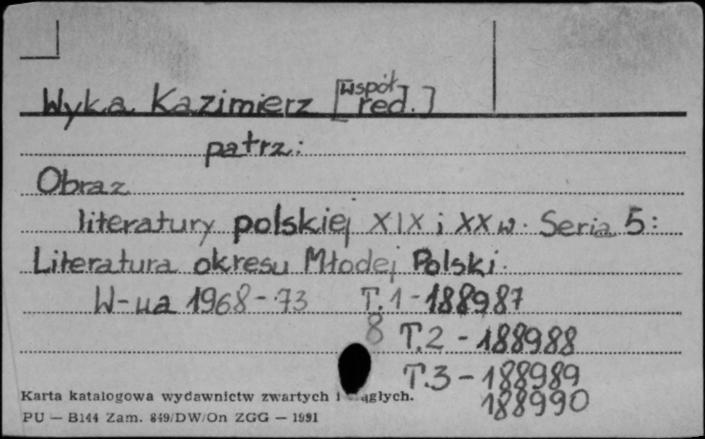 Wyka Kazimierz [współ
red.]
patrz:
Obraz
literatury polskiej XIX i XX w. Seria 5:
Literatura okresu Młodej Polski.
W-wa 1968-73 T.1-188987
8 T.2 - 188988
T.3 - 188989
188990
Karta katalogowa wydawnictw zwartych i
PU — B144 Zam. 849/DW/On ZGG — 1991